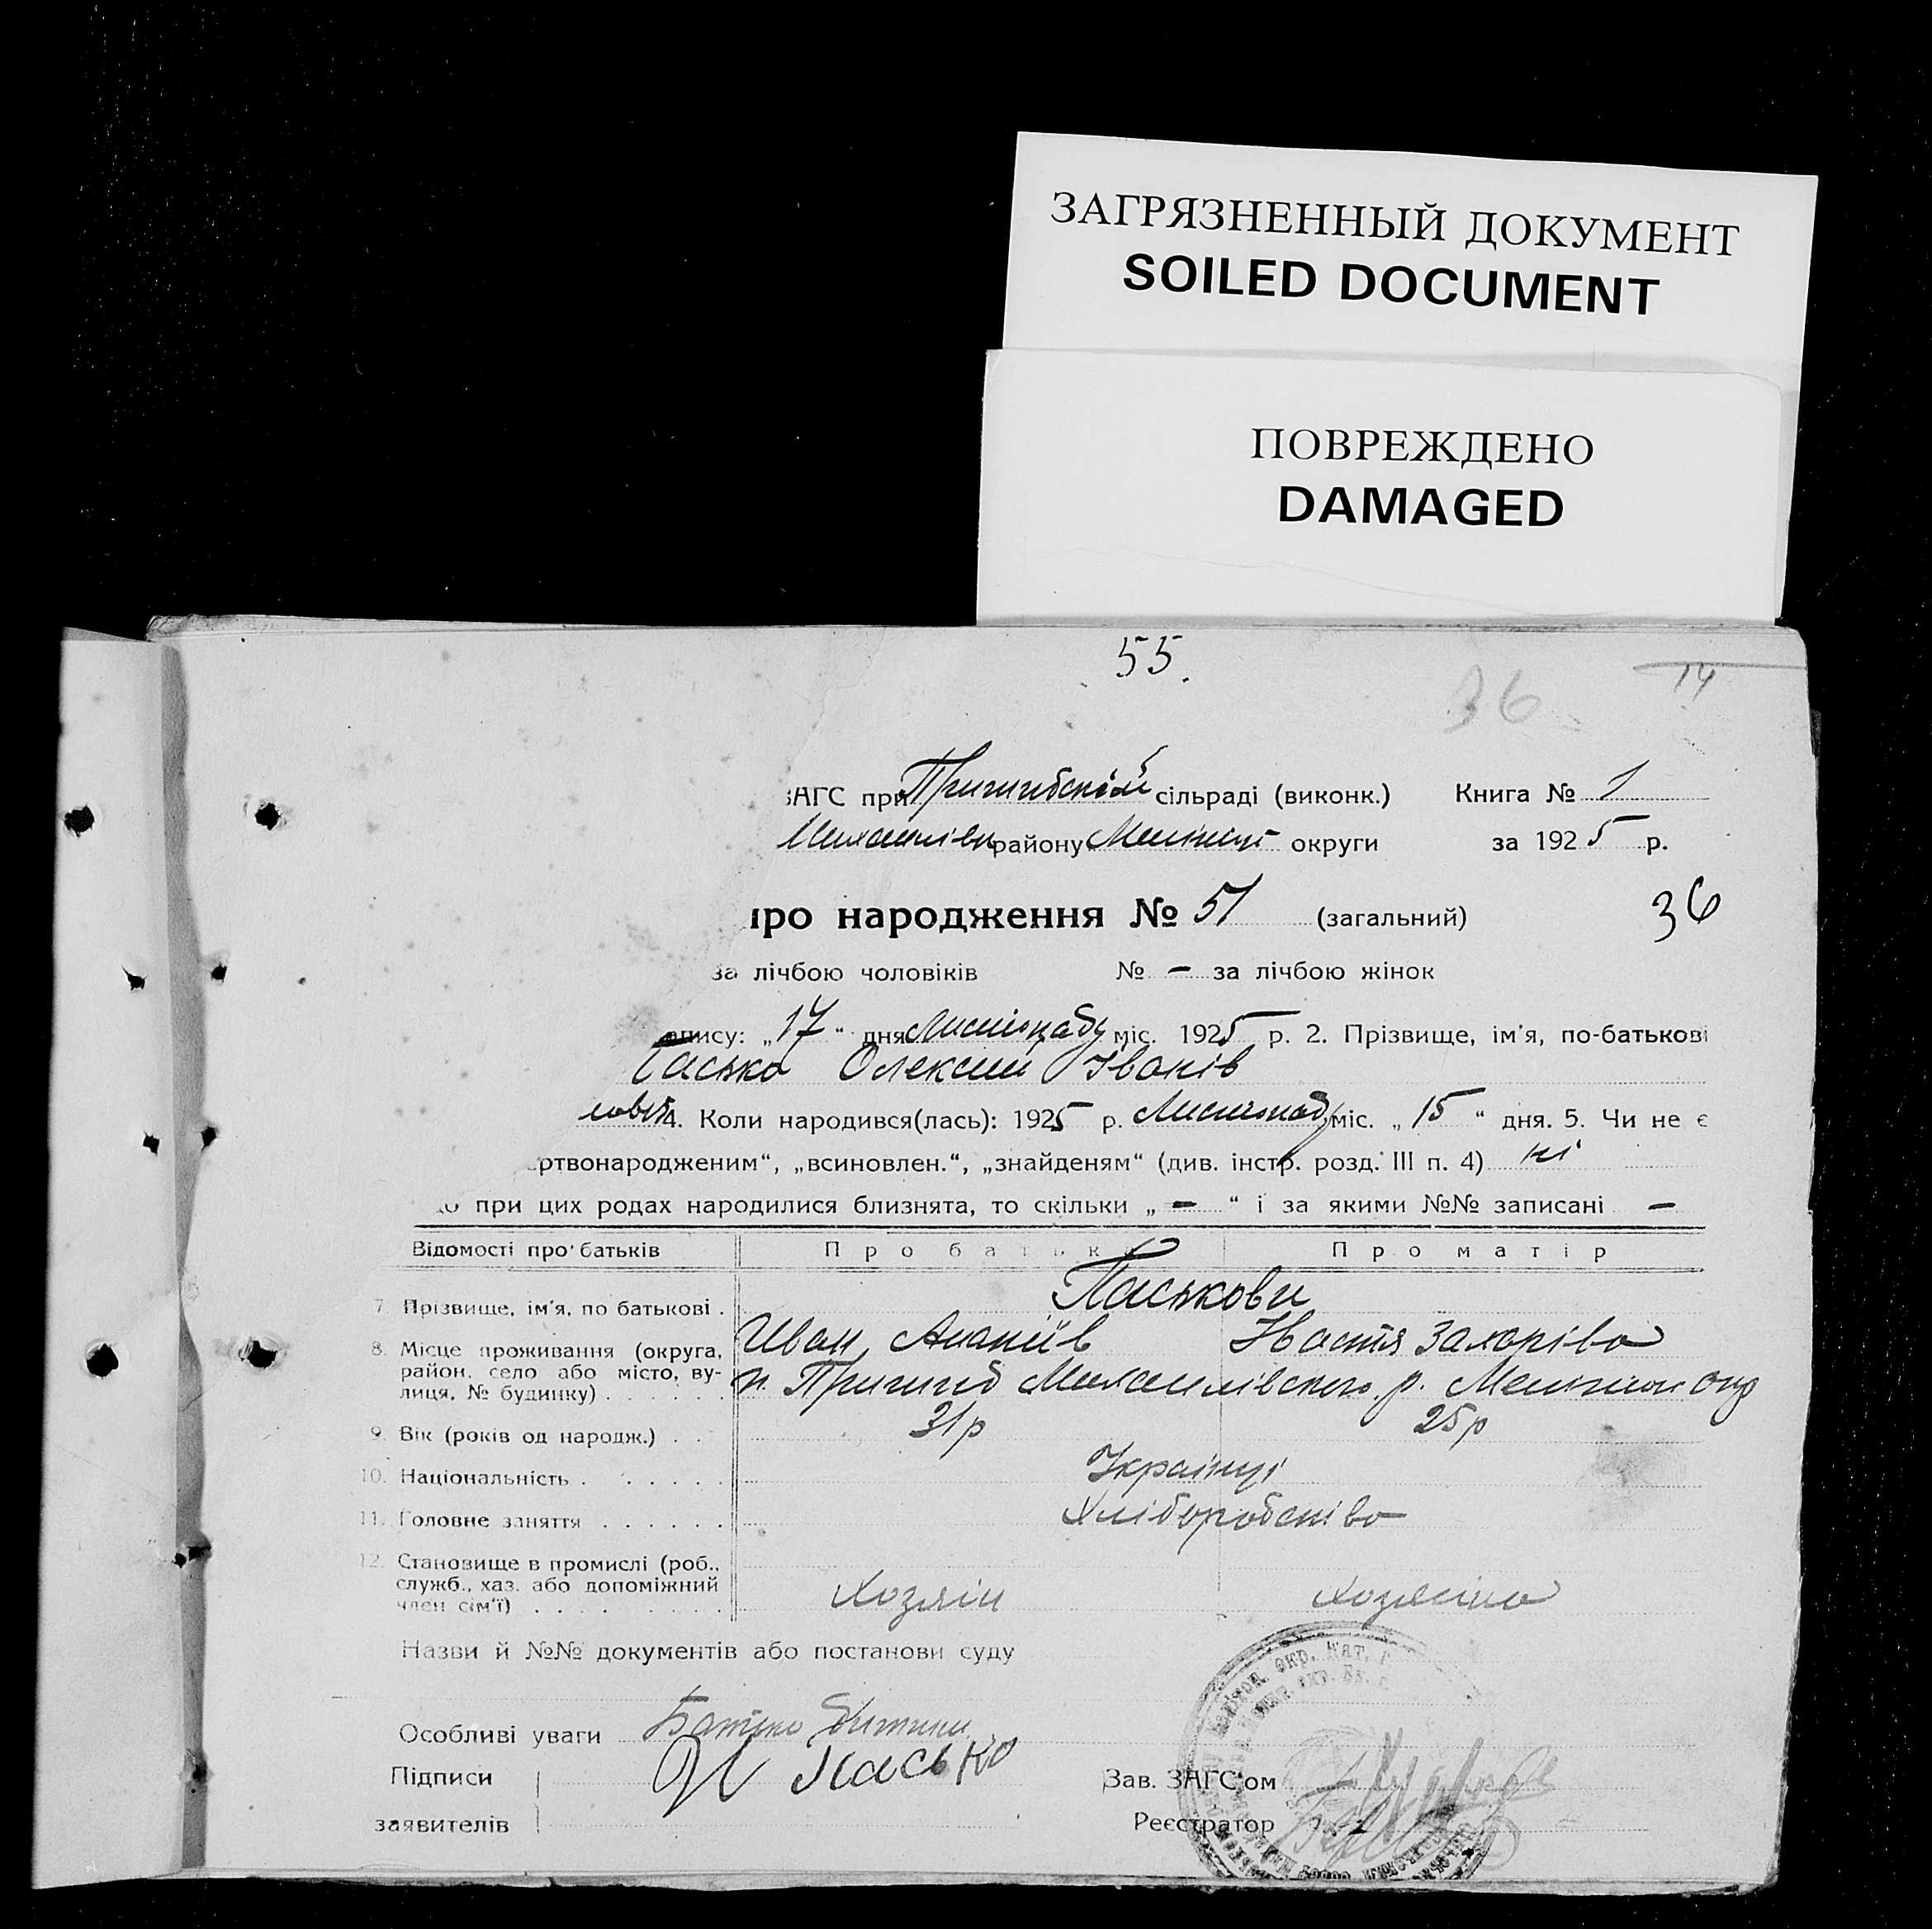 ЗАГРЯЗНЕННЫЙ ДОКУМЕНТ
SOILED DOCUMENT
ПОВРЕЖДЕНО
DAMAGED
55.
36 14
ЗАГС при Пришибській сільраді (виконк.) Книга № 1
Михайлівк району Мелітоп округи за 1925 р.
про народження № 51 (загальний) 36
за лічбою чоловіків № — за лічбою жінок
запису: „17“ дня Листопаду міс. 1925 р. 2. Прізвище, ім'я, по-батькові
Пасько Олексій Іванів
4. Коли народився(лась): 1925 р. Листопаду міс. „15“ дня. 5. Чи не є
ртвонародженим“, „всиновлен.“, „знайденям“ (див. інстр. розд. III п. 4) ні
що при цих родах народилися близнята, то скільки „—“ і за якими №№ записані —
Відомості про батьків Про батька Про матір
Паськови
7. Прізвище, ім'я, по батькові .
Иван Ананіїв Настя Захаріва
8. Місце проживання (округа,
район, село або місто, ву-
лиця, № будинку) . . . . . .
п. Пришиб Михайлівського р. Мелітоп окр
9. Вік (років од народж.) . . 31р 25р
10. Національність . . . . . . Українці
11. Головне заняття . . . . . . Хліборобство
12. Становище в промислі (роб.,
служб., хаз. або допоміжний
член сім'ї) . . . . . . . .
Хозяїн Хозяйка
Назви й №№ документів або постанови суду
Особливі уваги Батько дитини
Підписи И Пасько Зав. ЗАГС'ом
заявителів Реєстратор